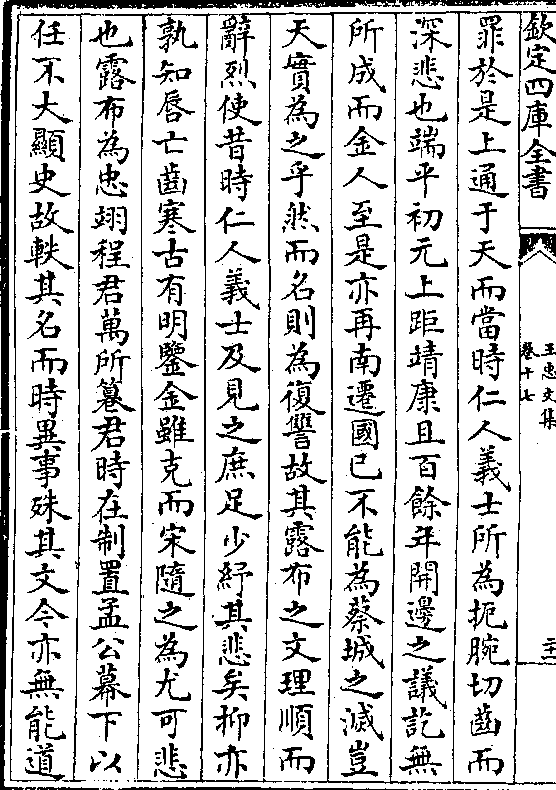 欽定四庫全書
王忠文集
卷十七
二十一
罪於是上通于天而當時仁人義士所為扼腕切齒而
深悲也端平初元上距靖康且百餘年開邊之議訖無
所成而金人至是亦再南遷國已不能為蔡城之滅豈
天實為之乎然而名則為復讐故其露布之文理順而
辭烈使昔時仁人義士及見之庶足少紓其悲矣抑亦
孰知唇亡齒寒古有明鑒金雖克而宋隨之為尤可悲
也露布為忠翊程君萬所篹君時在制置孟公幕下以
任不大顯史故軼其名而時異事殊其文今亦無能道